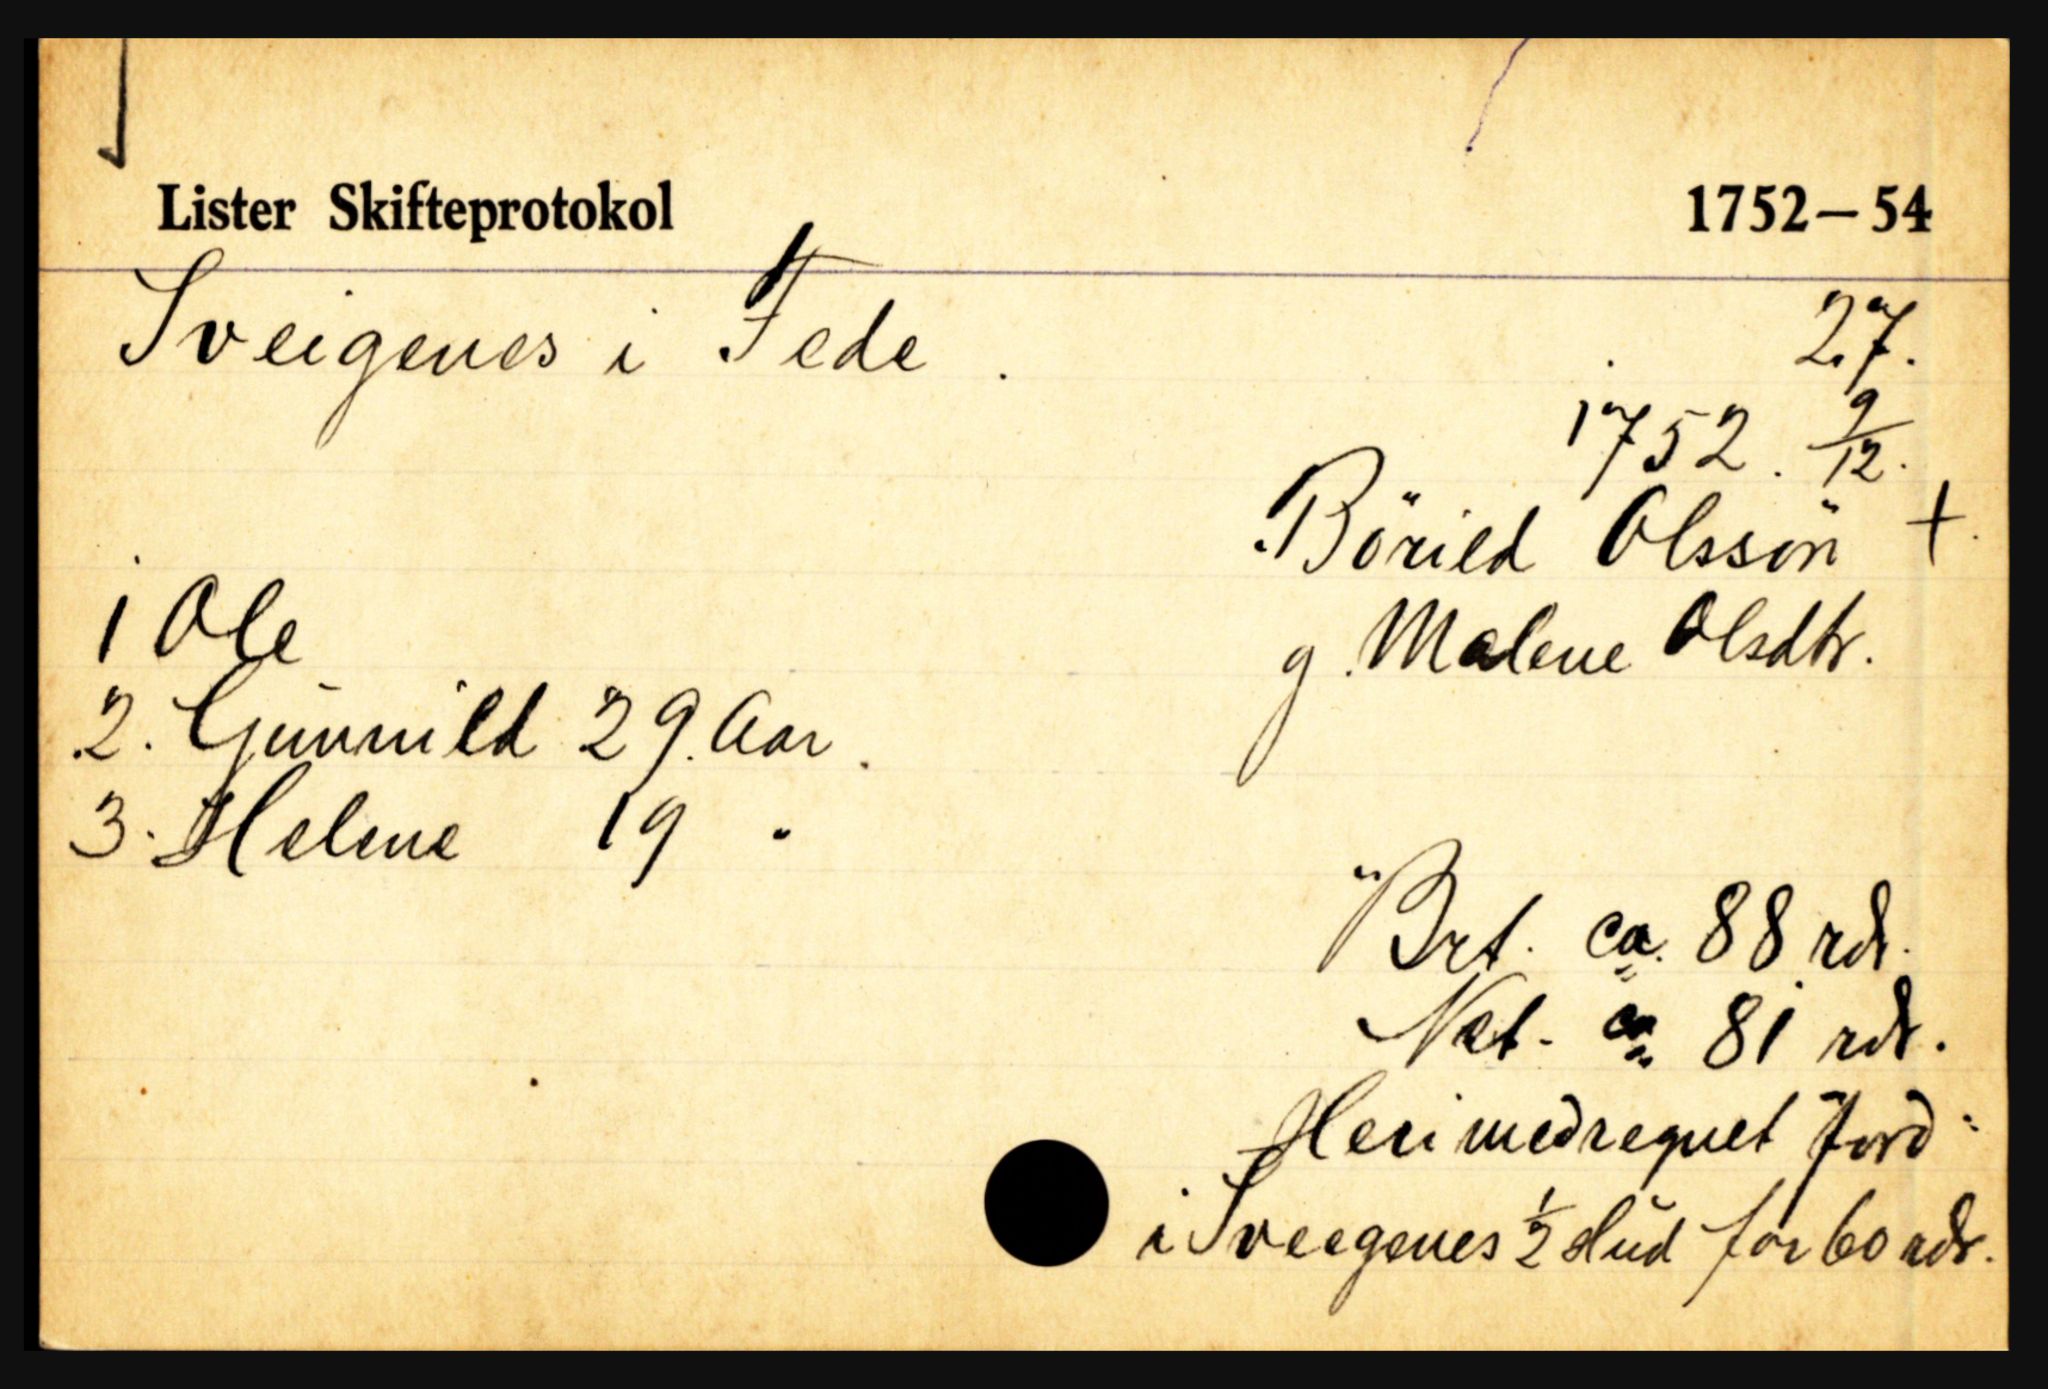 Lister Skifteprotokol 1752–54
Sveigenes i Fede. 27.
1752. 9/12.
Börild Olssön +
g. Malene Olsdtr.
1 Ole
2. Gunnild 29 Aar.
3. Helene 19 "
Brt. ca. 88 rdr.
Net. ca 81 rdr.
Heri medregnet Jord
i Sveigenes 1/2 Hud for 60 rdr.